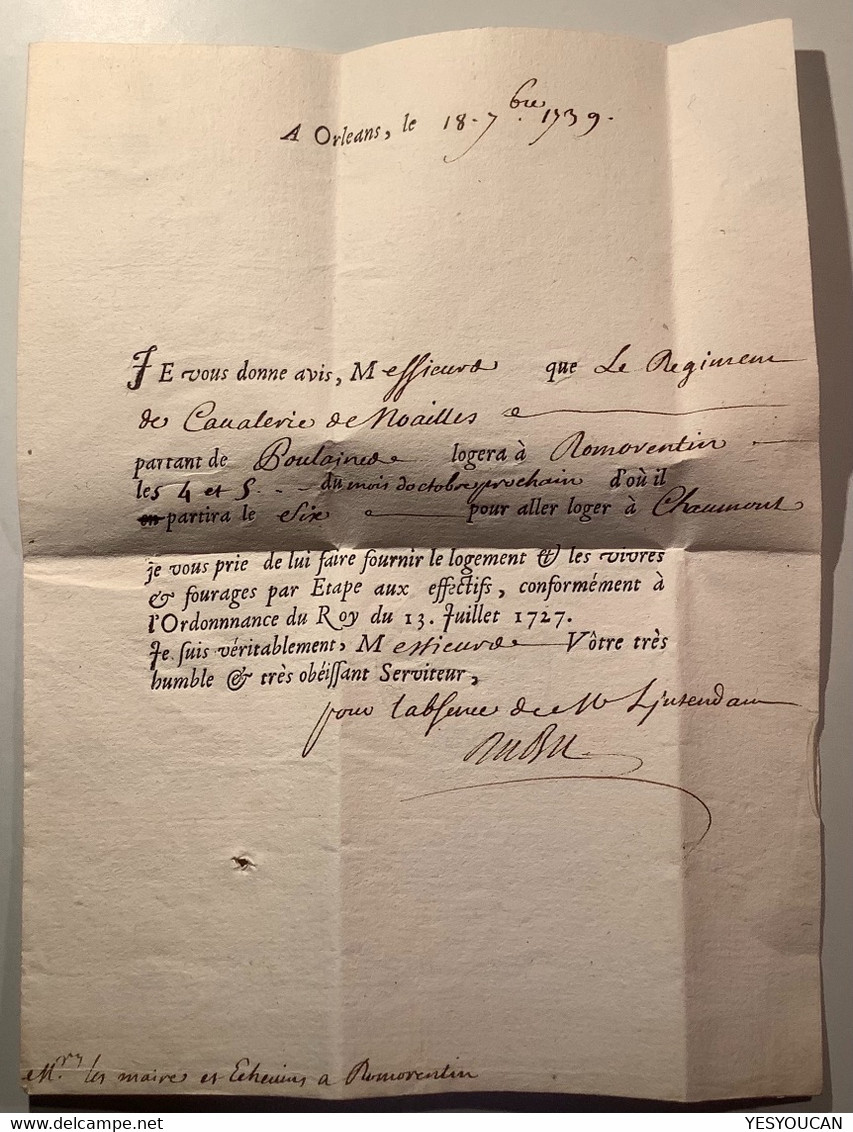 A Orleans, le 18. 7.bre 1739.
JE vous donne avis, Messieurs que Le Regiment
de Caualerie de Noailles
partant de Poulaines logera à Romorentin
les 4 et 5. du mois doctobre prochain d'où il
en partira le Six pour aller loger à Chaumont
je vous prie de lui faire fournir le logement & les vivres
& fourages par Etape aux effectifs, conformément à
l'Ordonnnance du Roy du 13. Juillet 1727.
Je suis véritablement, Messieurs Vôtre très
humble & très obéissant Serviteur,
pour labsence de Mr Lintendant
Mrs. les maire et Echevins a Romorentin
YESYOUCAN
delcampe.net